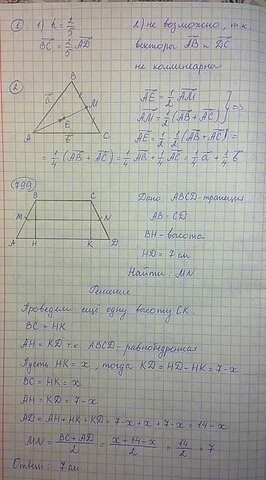 ① 1) k = 2/5
BC = 2/5 AD
2) не возможно, т.к.
векторы AB и DC
не коллинеарны
②
B
a
M
E
A
b
C
AE = 1/2 AM
AM = 1/2 (AB + AC) } =>
AE = 1/2 · 1/2 (AB + AC) =
= 1/4 (AB + AC) = 1/4 AB + 1/4 AC = 1/4 a + 1/4 b
799
B C
M N
A H K D
Дано: ABCD - трапеция
AB = CD
BH - высота
HD = 7 см
Найти: MN
Решение
Проведем ещё одну высоту CK
BC = HK
AH = KD т.к. ABCD - равнобедренная
Пусть HK = x, тогда KD = HD - HK = 7 - x
BC = HK = x
AH = KD = 7 - x
AD = AH + HK + KD = 7 - x + x + 7 - x = 14 - x
MN = BC + AD / 2 = x + 14 - x / 2 = 14 / 2 = 7
Ответ: 7 см